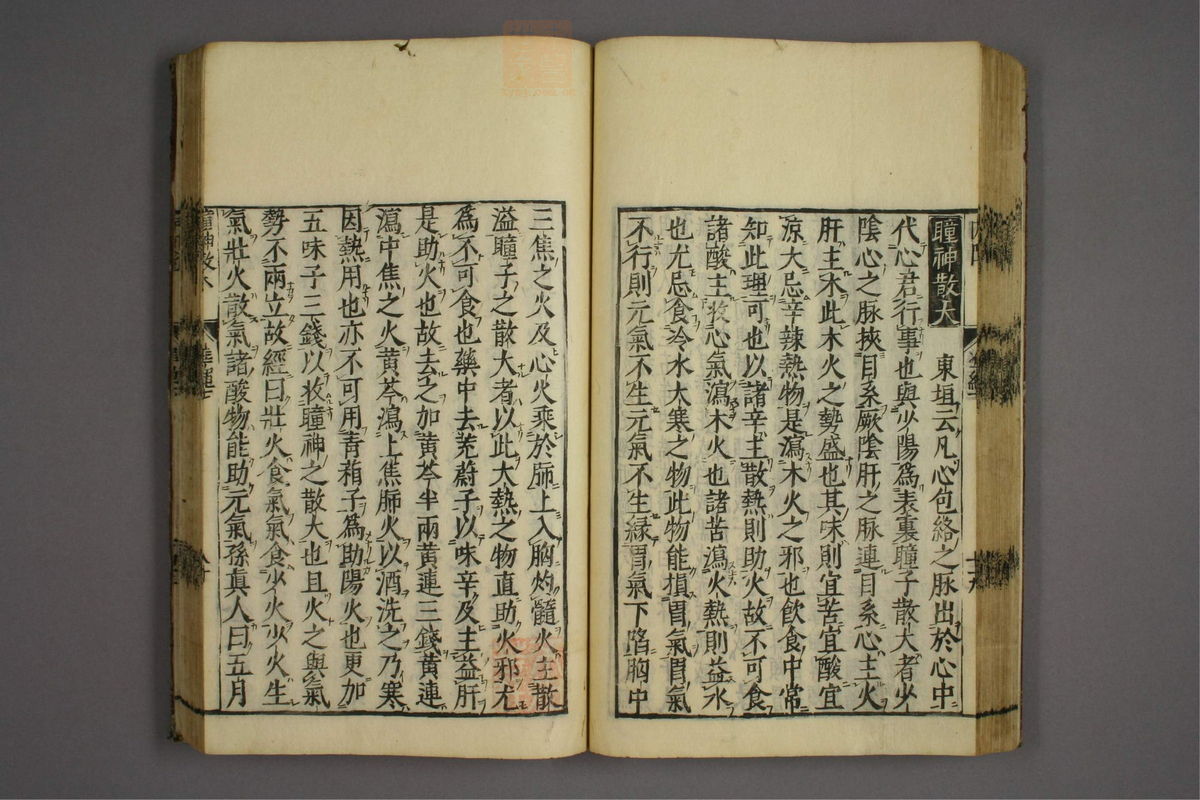 瞳神散大　東垣云凡心包絡之脉出於心中
代心君行事也與少陽爲表裏瞳子散大者少
陰心之脉挾目系厥陰肝之脉連目系心主火
肝主木此木火之勢盛也其味則宜苦宜酸宜
凉大忌辛辣熱物是瀉木火之邪也飲食中常
知此理可也以諸辛主散熱則助火故不可食
諸酸主收心氣瀉木火也諸苦瀉火熱則益水
也尤忌食冷水大寒之物此物能損胃氣胃氣
不行則元氣不生元氣不生縁胃氣下陷胸中
三焦之火及心火乘於肺上入腦灼髓火主散
溢瞳子之散大者以此大熱之物直助火邪尤
爲不可食也藥中去茺蔚子以味辛及主益肝
是助火也故去之加黄芩半兩黄連三錢黄連
瀉中焦之火黄芩瀉上焦肺火以酒洗之乃寒
因熱用也亦不可用青葙子爲助陽火也更加
五味子三錢以收瞳神之散大也且火之與氣
勢不兩立故經曰壯火食氣氣食少火少火生
氣壯火散氣諸酸物能助元氣孫眞人曰五月